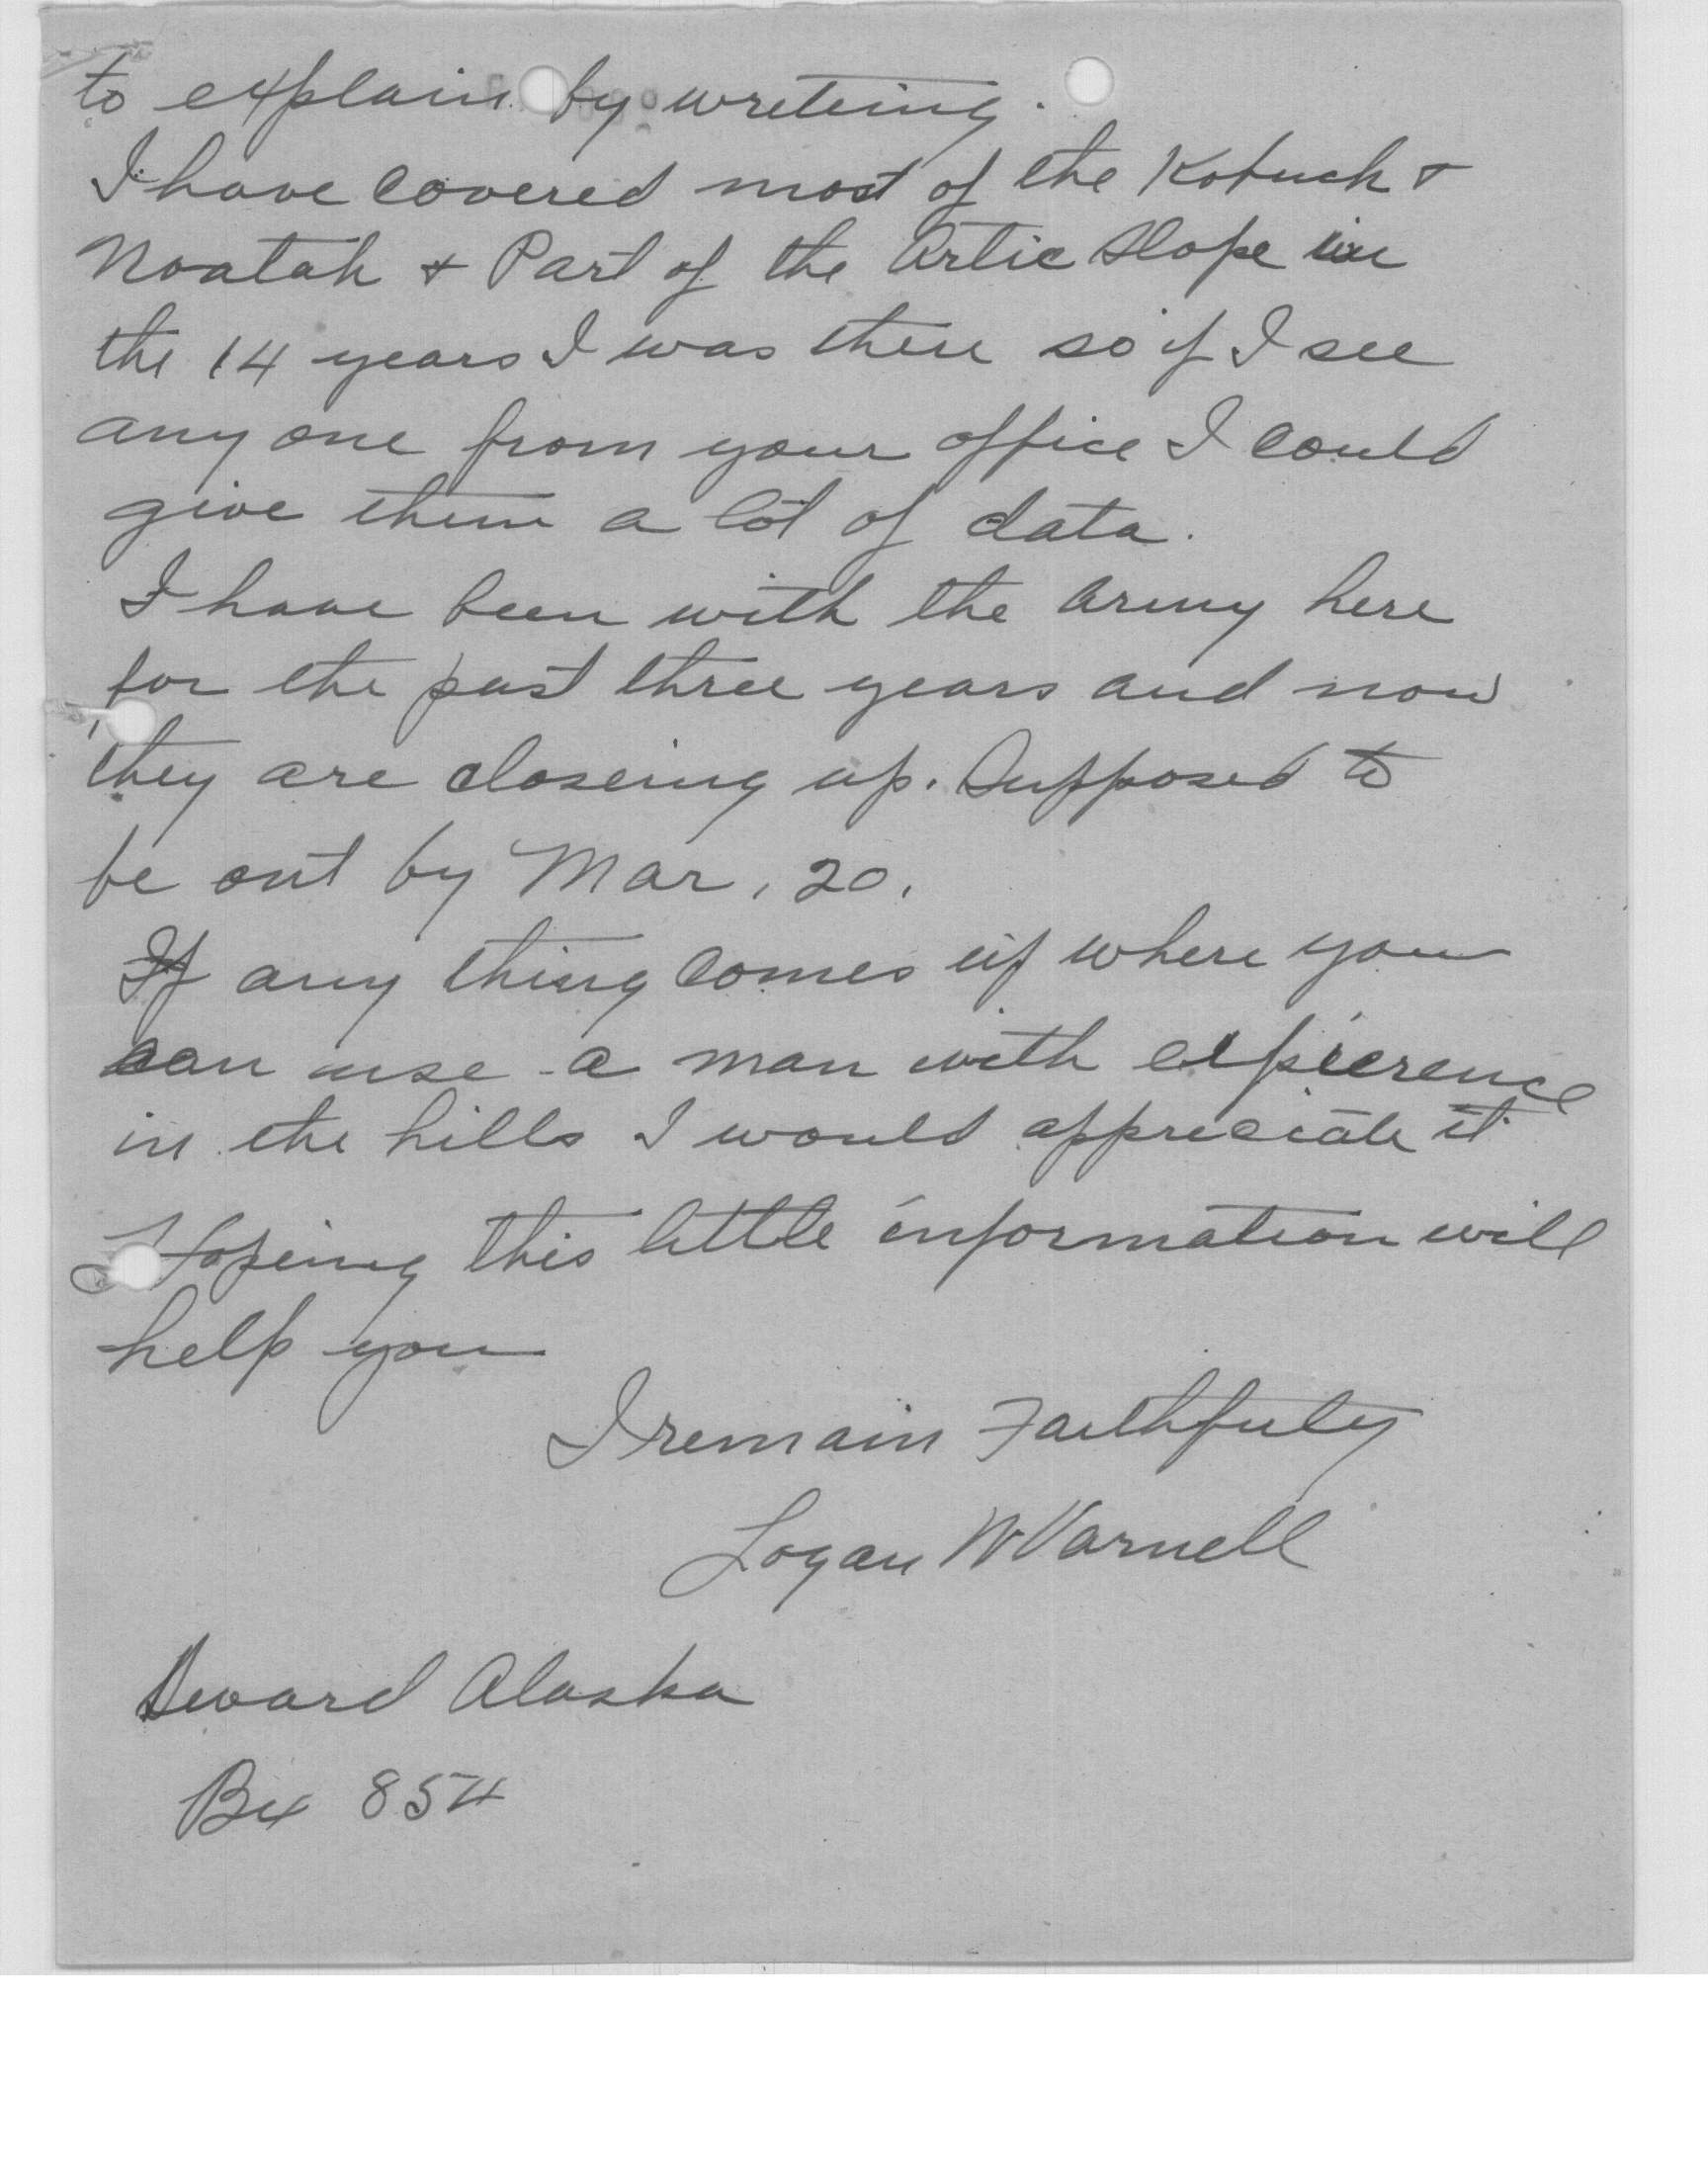 to explain by writeing.
I have covered most of the Kobuck &
Noatak & Part of the Artic Slope in
the 14 years I was there so if I see
any one from your office I could
give them a lot of data.
I have been with the Army here
for the past three years and now
they are closeing up. Supposed to
be out by Mar, 20.
If any thing comes up where you
can use a man with expierence
in the hills I would appreciate it
Hopeing this little information will
help you
I remain Faithfuly
Logan W Varnell
Seward Alaska
Bx 854